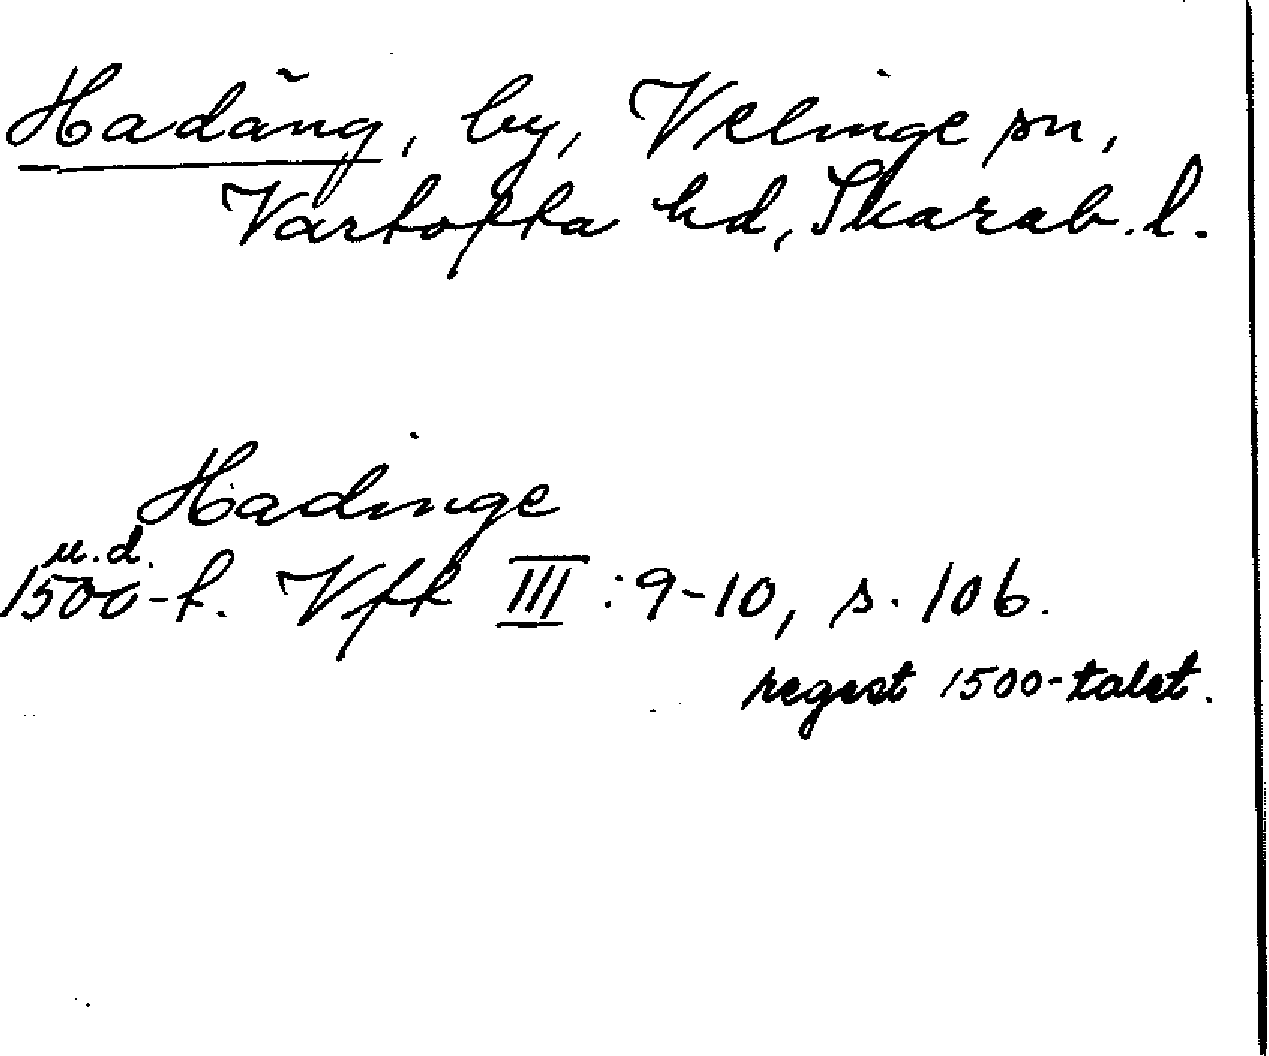 Hadäng, by, Velinge sn,
Vartofta hd, Skarab. l.
Hadinge
u.d.
1500-t. Vft III:9-10, s. 106.
regest 1500-talet.